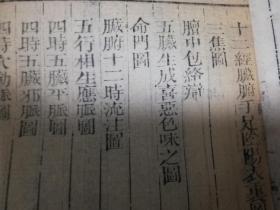 十二經臟腑手足陰陽表裏圖
三焦圖
膻中包絡辯
五臟生成喜惡色味之圖
命門圖
臟腑十二時流注圖
五行相生應脈圖
四時五臟平脈圖
四時五臟邪脈圖
四時六動脈圖